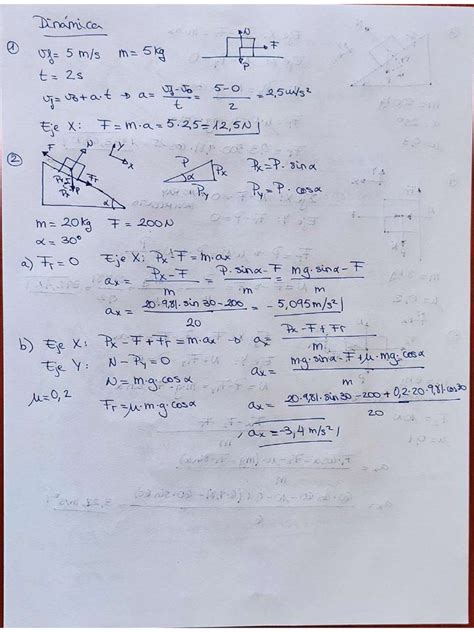 Dinámica
① vf = 5 m/s   m = 5 kg
t = 2 s
vf = v0 + a·t → a = (vf - v0)/t = (5-0)/2 = 2,5 m/s²
Eje X: F = m·a = 5·2,5 = 12,5 N
N
F
P
② F
N
Y
X
Px
P
Fr
α
P
Px
α
Py
Px = P·sinα
Py = P·cosα
m = 20 kg   F = 200 N
α = 30°
a) Fr = 0   Eje X: Px - F = m·ax
ax = (Px - F)/m = (P·sinα - F)/m = (mg·sinα - F)/m
ax = (20·9,81·sin30 - 200)/20 = -5,095 m/s²
b) Eje X: Px - F + Fr = m·ax → ax = (Px - F + Fr)/m
Eje Y: N - Py = 0
ax = (mg·sinα - F + μ·mg·cosα)/m
N = m·g·cosα
μ = 0,2   Fr = μ·m·g·cosα
ax = (20·9,81·sin30 - 200 + 0,2·20·9,81·cos30)/20
ax = -3,4 m/s²